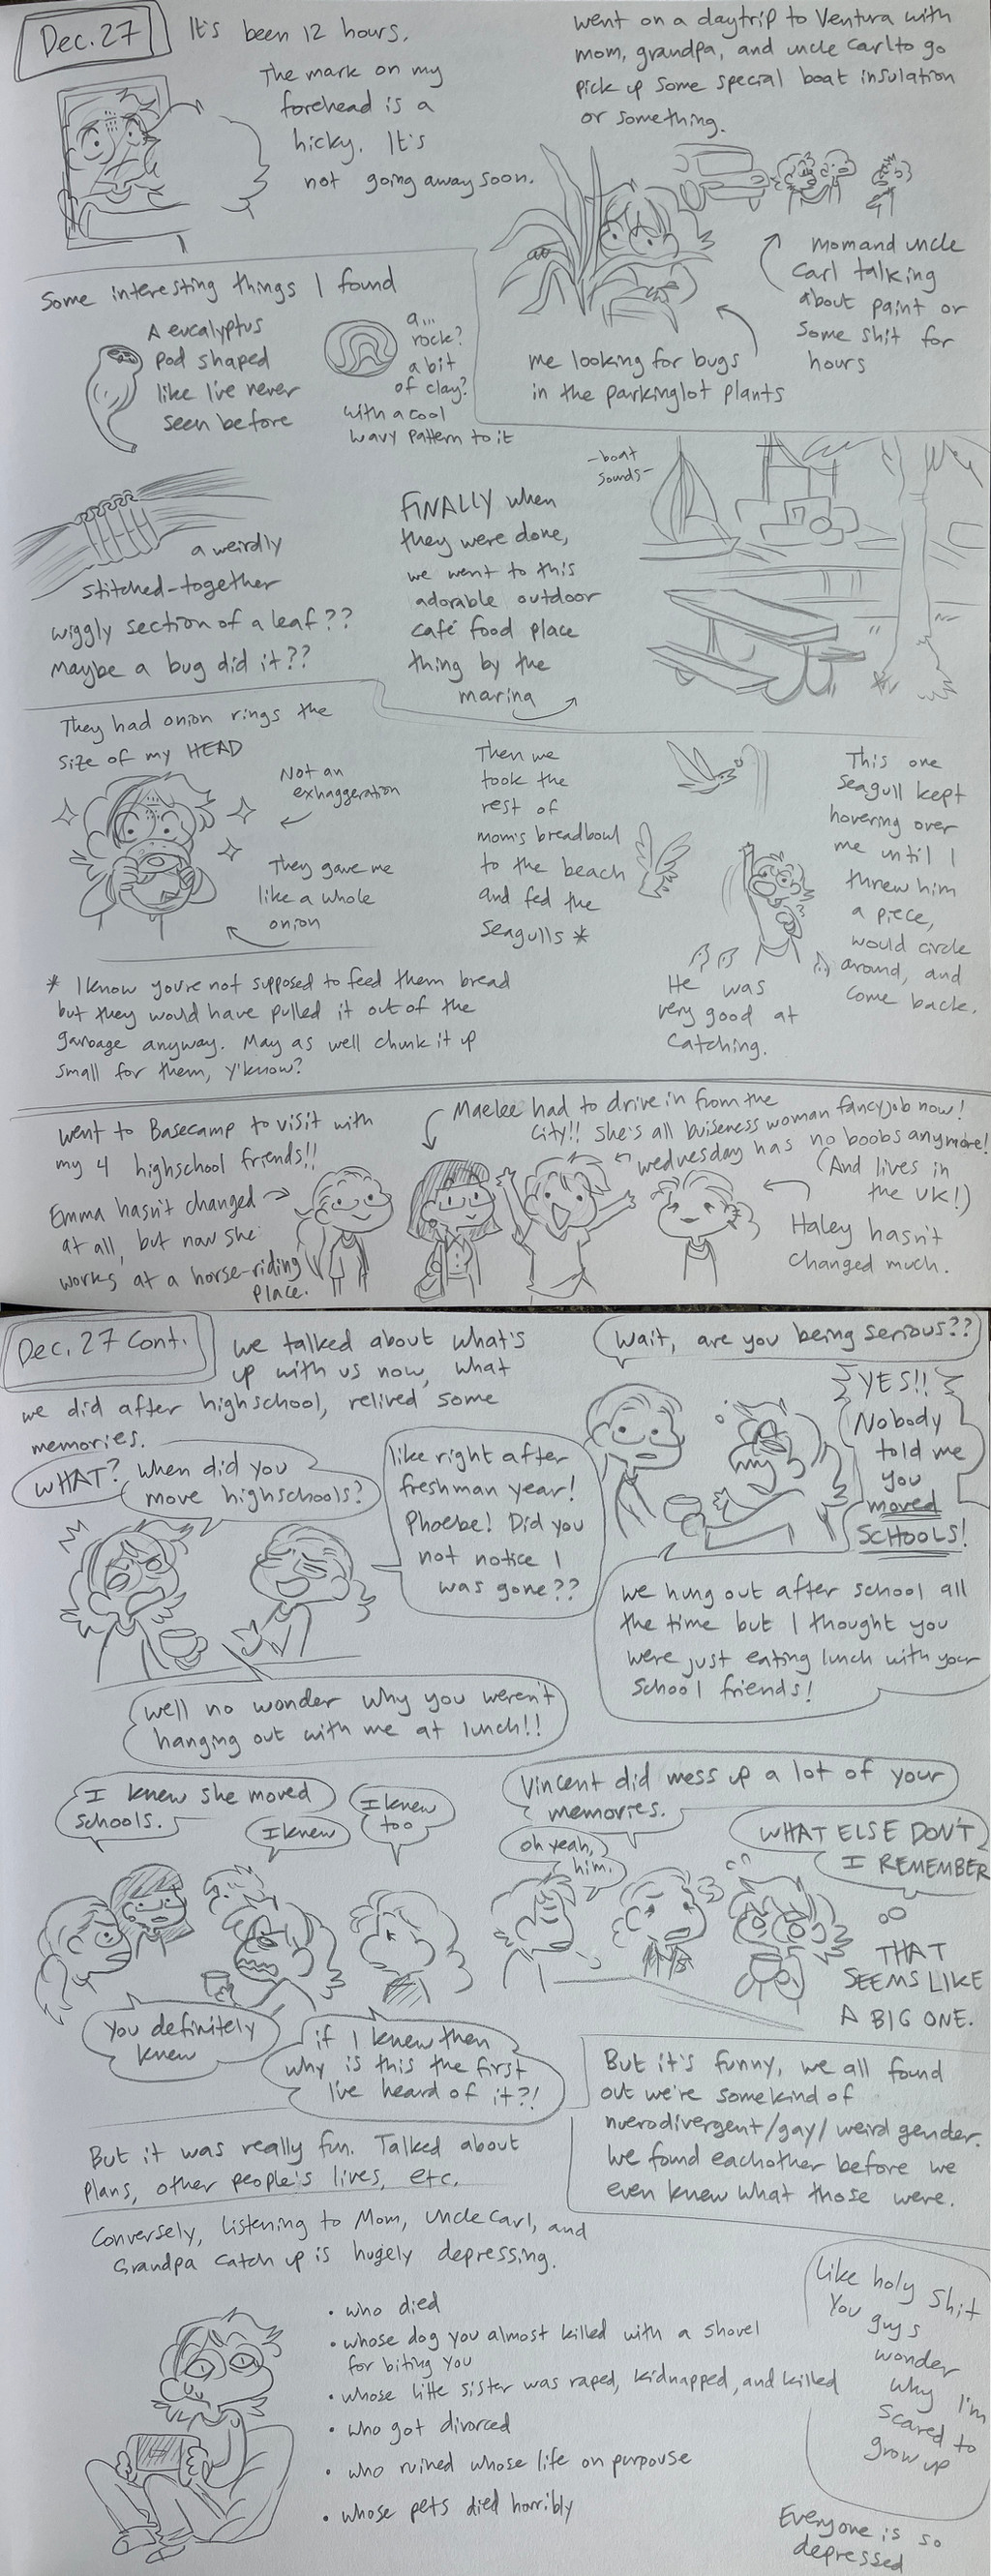 Dec. 27
It's been 12 hours.
The mark on my
forehead is a
hicky. It's
not going away soon.
went on a daytrip to Ventura with
mom, grandpa, and uncle Carl to go
pick up some special boat insulation
or something.
mom and uncle
Carl talking
about paint or
some shit for
hours
me looking for bugs
in the parkinglot plants
Some interesting things I found
A eucalyptus
pod shaped
like I've never
seen before
a...
rock?
a bit
of clay?
with a cool
wavy pattern to it
a weirdly
stitched-together
wiggly section of a leaf??
Maybe a bug did it??
FINALLY when
they were done,
we went to this
adorable outdoor
café food place
thing by the
marina
-boat
sounds-
They had onion rings the
size of my HEAD
Not an
exhaggeration
They gave me
like a whole
onion
Then we
took the
rest of
mom's breadbowl
to the beach
and fed the
seagulls *
This one
seagull kept
hovering over
me until I
threw him
a piece,
would circle
around, and
come back.
He was
very good at
catching.
* I know you're not supposed to feed them bread
but they would have pulled it out of the
garbage anyway. May as well chunk it up
small for them, y'know?
went to Basecamp to visit with
my 4 highschool friends!!
Emma hasn't changed
at all, but now she
works at a horse-riding
place.
Maelee had to drive in from the
City!! She's all buiseness woman fancyjob now!
wednesday has no boobs anymore!
(And lives in
the UK!)
Haley hasn't
changed much.
Dec. 27 Cont.
we talked about what's
up with us now, what
we did after highschool, relived some
memories.
WHAT? When did you
move highschools?
like right after
freshman year!
Phoebe! Did you
not notice I
was gone??
well no wonder why you weren't
hanging out with me at lunch!!
Wait, are you being serious??
YES!!
Nobody
told me
you
moved
SCHOOLS!
we hung out after school all
the time but I thought you
were just eating lunch with your
school friends!
I knew she moved
schools.
I knew
I knew
too
You definitely
knew
if I knew then
why is this the first
I've heard of it?!
Vincent did mess up a lot of your
memories.
oh yeah,
him.
WHAT ELSE DON'T
I REMEMBER
THAT
SEEMS LIKE
A BIG ONE.
But it was really fun. Talked about
plans, other people's lives, etc.
But it's funny, we all found
out we're some kind of
nuerodivergent/gay/weird gender.
we found eachother before we
even knew what those were.
Conversely, listening to Mom, Uncle Carl, and
Grandpa catch up is hugely depressing.
• who died
• whose dog you almost killed with a shovel
for biting you
• whose litte sister was raped, kidnapped, and killed
• who got divorced
• who ruined whose life on purpouse
• whose pets died horribly
Like holy shit
You guys
wonder
why I'm
scared to
grow up
Everyone is so
depressed